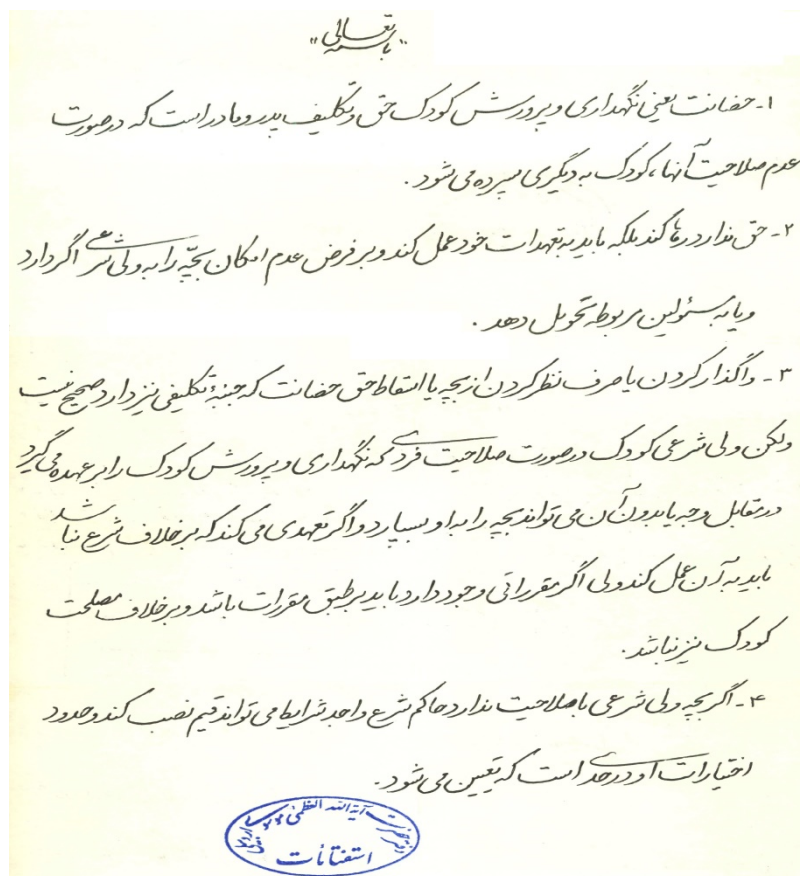 "باسمه تعالی"
۱- حضانت یعنی نگهداری و پرورش کودک حق و تکلیف پدر و مادر است که در صورت
عدم صلاحیت آنها، کودک به دیگری سپرده می شود.
۲- حق ندارد رها کند بلکه باید به تعهدات خود عمل کند و بر فرض عدم امکان بچّه را به ولی شرعی اگر دارد
و یا به مسئولین مربوطه تحویل دهد.
۳- واگذار کردن یا صرف نظر کردن از بچه یا اسقاط حق حضانت که جنبۀ تکلیفی نیز دارد صحیح نیست
ولکن ولی شرعی کودک در صورت صلاحیت فردی که نگهداری و پرورش کودک را بر عهده می گیرد
در مقابل وجه یا بدون آن می تواند بچه را به او بسپارد و اگر تعهدی می کند که بر خلاف شرع نباشد
باید به آن عمل کند ولی اگر مقرراتی وجود دارد باید بر طبق مقررات باشد و بر خلاف مصلحت
کودک نیز نباشد.
۴- اگر بچه ولی شرعی با صلاحیت ندارد حاکم شرع واجد شرایط می تواند قیم نصب کند و حدود
اختیارات او در حدی است که تعیین می شود.
دفتر حضرت آیة الله العظمی موسوی اردبیلی
استفتائات